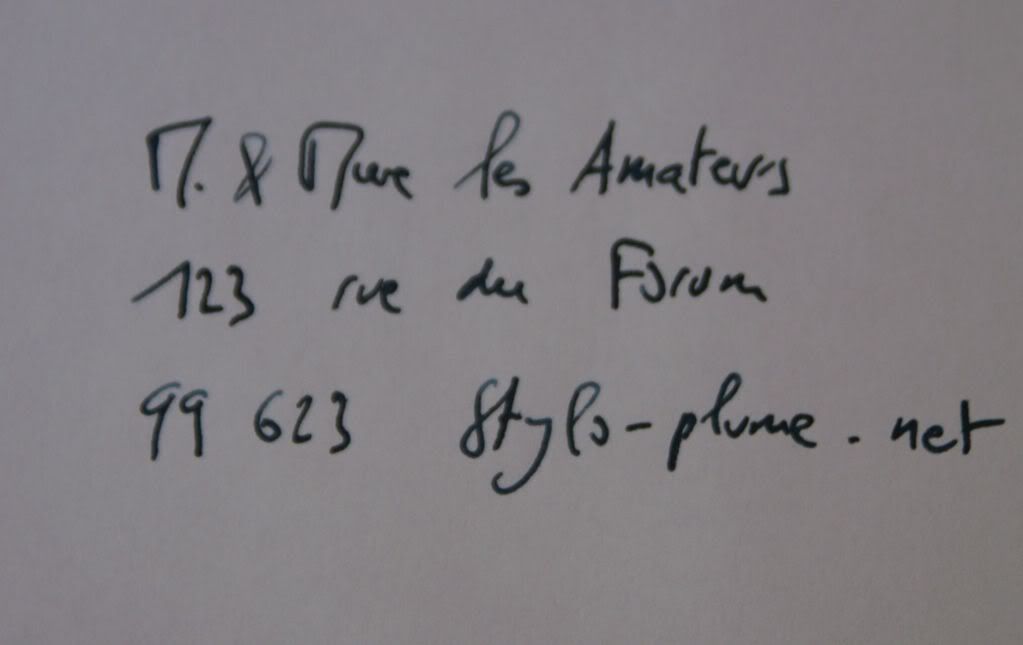 M. & Mme les Amateurs
123 rue du Forum
99 623 Stylo-plume.net